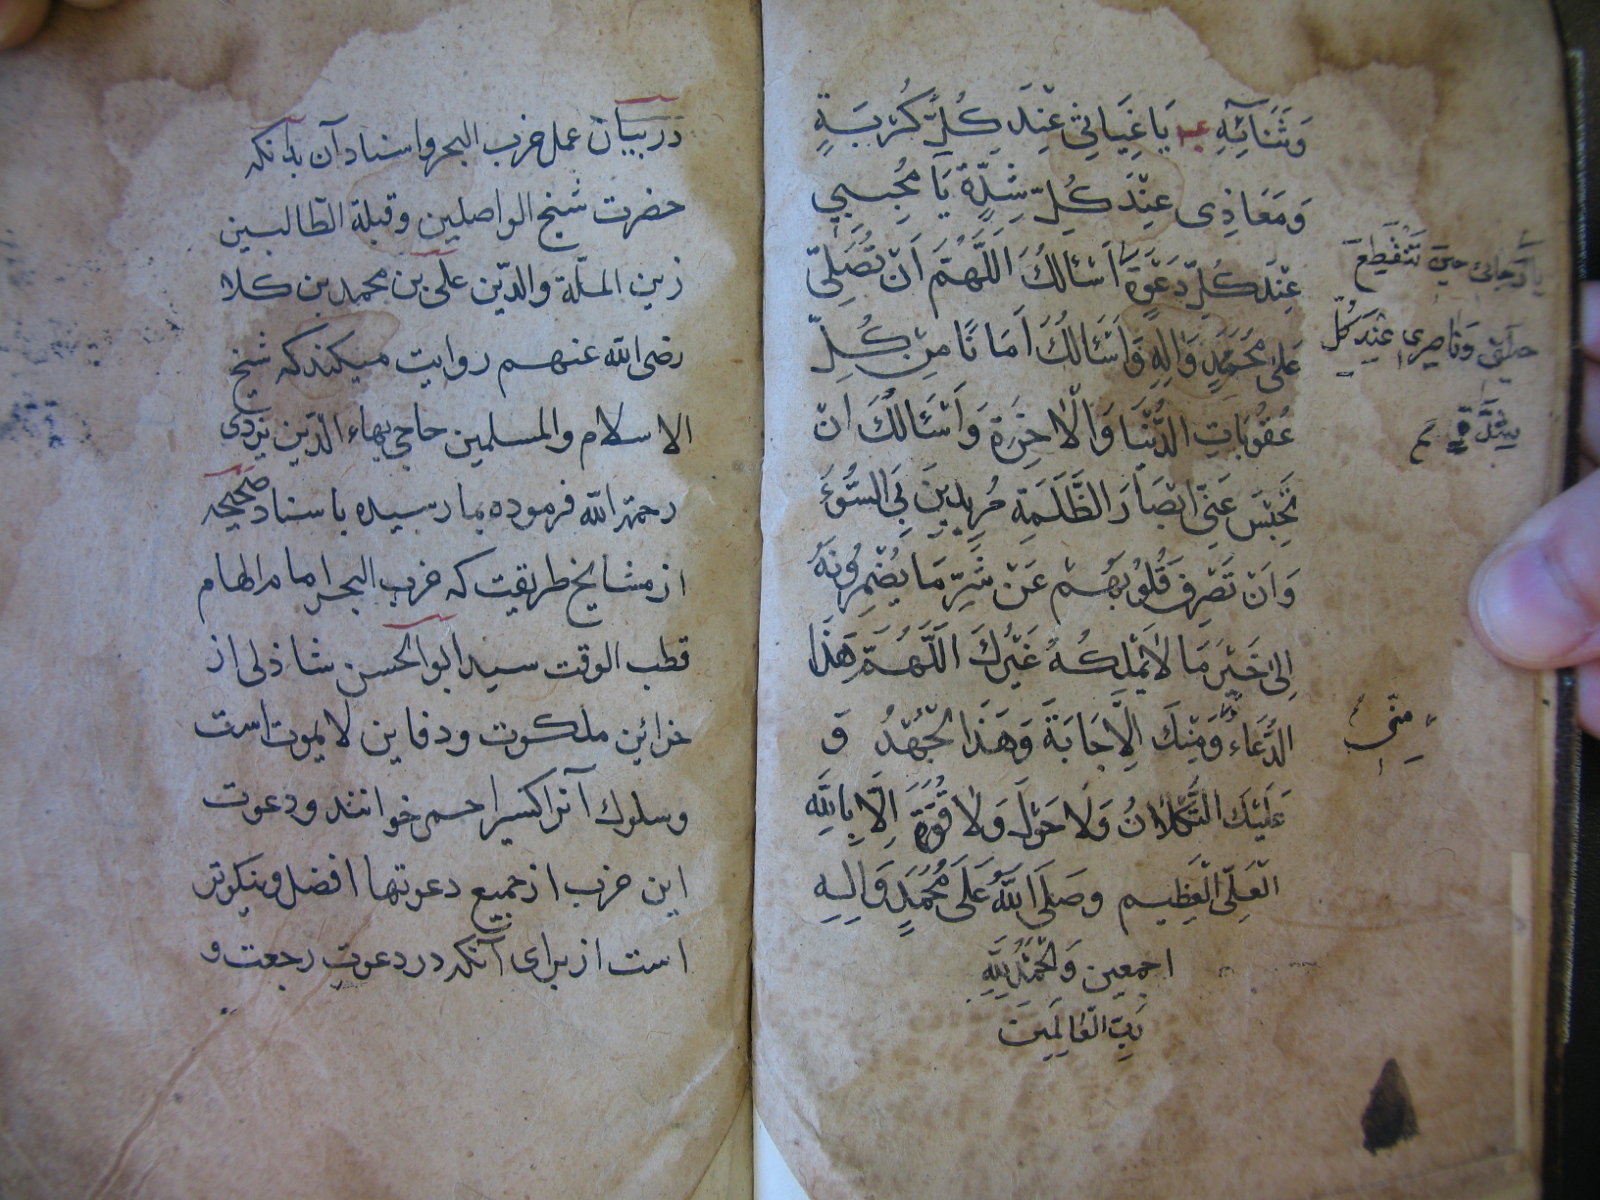 وَثَنَائِهِ يَا غِيَاثِي عِنْدَ كُلِّ كُرْبَةٍ
وَمَعَاذِى عِنْدَ كُلِّ شِدَّةٍ يَا مُجِيبِي
عِنْدَ كُلِّ دَعْوَةٍ اَسْئَالُكَ اَللّٰهُمَّ اَنْ تُصَلِّيَ
عَلٰى مُحَمَّدٍ وَاٰلِهِ وَاَسْئَالُكَ اَمَانًا مِنْ كُلِّ
عُقُوبَاتِ الدُّنْيَا وَالْاٰخِرَةِ وَاَسْئَالُكَ اَنْ
تَحْبِسَ عَنِّى اَبْصَارَ الظَّلَمَةِ مُرِيدِينَ بِيَ السُّوءَ
وَاَنْ تَصْرِفَ قُلُوبَهُمْ عَنْ شَرِّ مَا يُضْمِرُونَهُ
اِلٰى خَيْرِ مَا لَا يَمْلِكُهُ غَيْرُكَ اَللّٰهُمَّ هَذَا
الدُّعَاءُ وَمِنْكَ الْاِجَابَةُ وَهَذَا الْجُهْدُ وَ
عَلَيْكَ التُّكْلَانُ وَلَا حَوْلَ وَلَا قُوَّةَ اِلَّا بِاللّٰهِ
الْعَلِىِّ الْعَظِيمِ وَصَلَى اللّٰهُ عَلَى مُحَمَّدٍ وَاٰلِهِ
اجمعين وَالْحَمْدُ لِلّٰهِ
رَبِّ الْعَالَمِينَ
رجائى حين تنقطع
حيلتى وَنَاصِرِى عِنْدَ كُلِّ
شِدَّةٍ
مِنِّى
در بيان عمل حزب البحر و اسناد آن بدانكه
حضرت شيخ الواصلين وقبلة الطّالبين
زين الملّة والدّين على بن محمد بن كلا
رضى الله عنهم روايت ميكند كه شيخ
الاسلام والمسلمين حاجي بهاء الدّين يزدى
رحمة الله فرموده بما رسيده باسناد صحيحه
از مشايخ طريقت كه حزب البحر امام الهام
قطب الوقت سيد ابو الحسن شاذلى از
خزائن ملكوت ودفاين لا يموت است
وسلوك آنرا اكسير احمر خوانند ودعوت
اين حزب از جميع دعوتها افضل ونيكوتر
است از براى آنكه در دعوت رجعت و